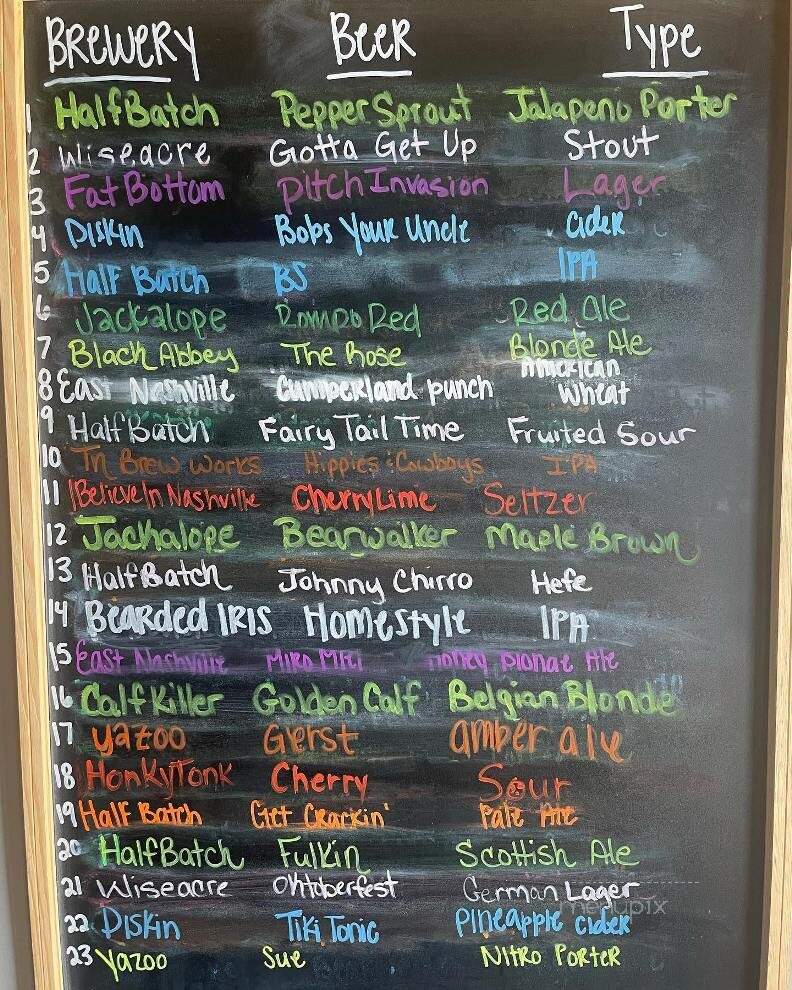 Brewery Beer Type
1 Half Batch Pepper Sprout Jalapeno Porter
2 Wiseacre Gotta Get Up Stout
3 Fat Bottom Pitch Invasion Lager
4 Diskin Bobs Your Uncle Cider
5 Half Batch BS IPA
6 Jackalope Rompo Red Red Ale
7 Black Abbey The Rose Blonde Ale
8 East Nashville Cumberland punch American Wheat
9 Half Batch Fairy Tail Time Fruited Sour
10 Tn Brew Works Hippies & Cowboys IPA
11 I Believe In Nashville Cherry Lime Seltzer
12 Jackalope Bearwalker Maple Brown
13 Half Batch Johnny Chirro Hefe
14 Bearded IRIS Homestyle IPA
15 East Nashville Miro Miel Honey Ale
16 Calf Killer Golden Calf Belgian Blonde
17 Yazoo Gerst amber ale
18 HonkyTonk Cherry Sour
19 Half Batch Get Crackin' Pale Ale
20 Half Batch Fulkin Scottish Ale
21 Wiseacre Oktoberfest German Lager
menupix
22 Diskin Tiki Tonic Pineapple cider
23 Yazoo Sue Nitro Porter